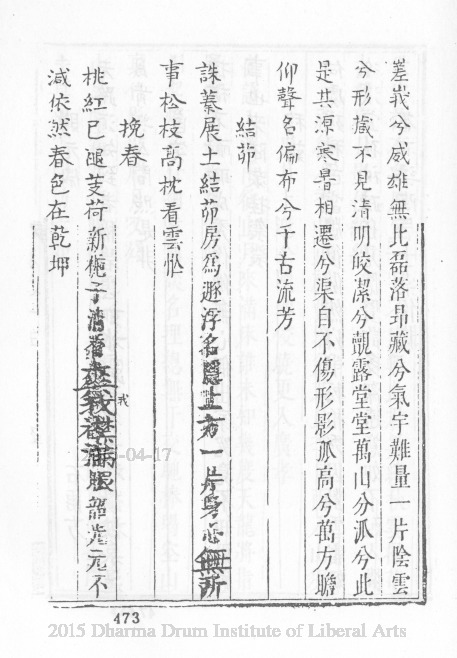 差峩兮威雄無比磊落昂藏兮氣宇難量一片陰雲
兮形藏不見清明皎潔兮覿露堂堂萬山分派兮此
是其源寒暑相遷兮渠自不傷形影孤高兮萬方瞻
仰聲名徧布兮千古流芳
結茆
誅蓁展土結茆房為遯浮名隱上方一片身心無所
事松枝高枕看雲忙
挽春
桃紅已褪芰荷新梔子清香滿眼韶光元不
減依然春色在乾坤
戒
-04-17
473
2015 Dharma Drum Institute of Liberal Arts